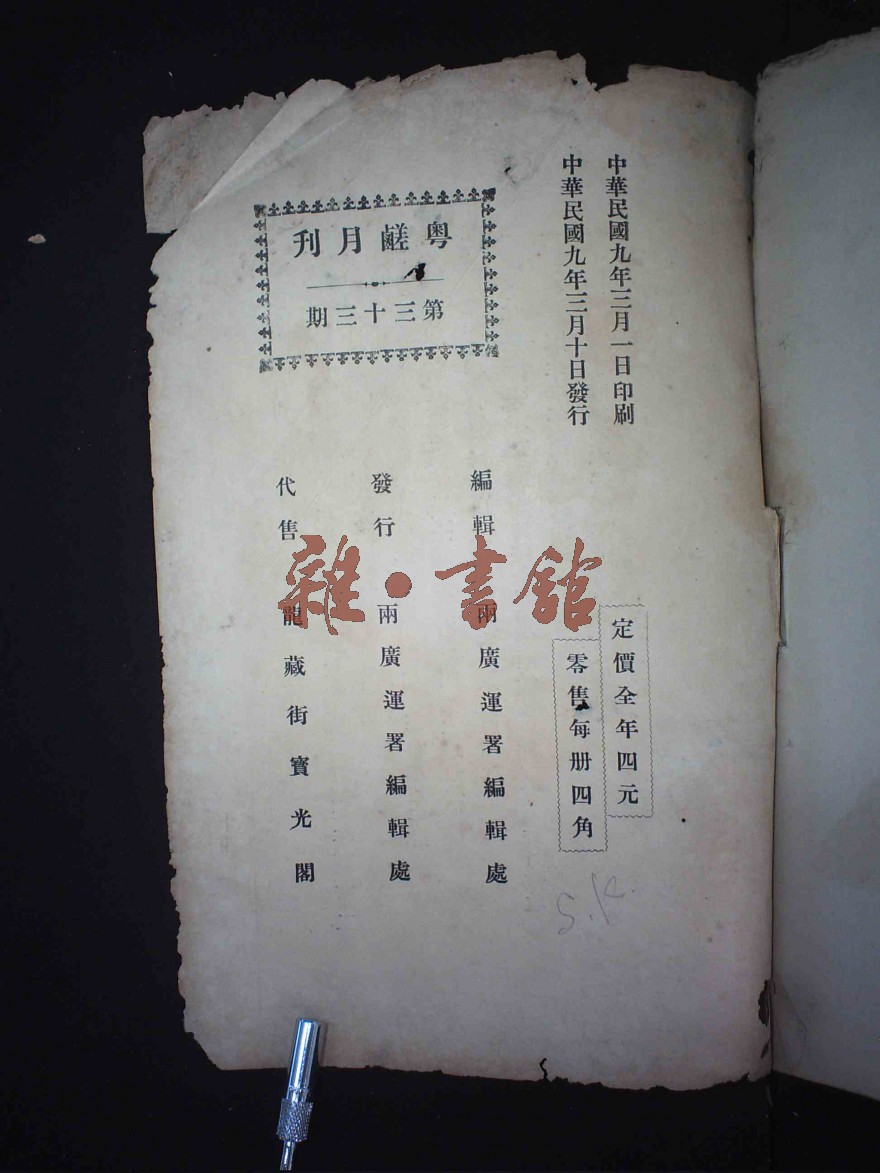 中華民國九年三月一日印刷
中華民國九年三月十日發行
粵鹺月刊
第三十三期
定價全年四元
零售每册四角
編輯 兩廣運署編輯處
發行 兩廣運署編輯處
代售 龍藏街寶光閣
雜·書館
S.K.